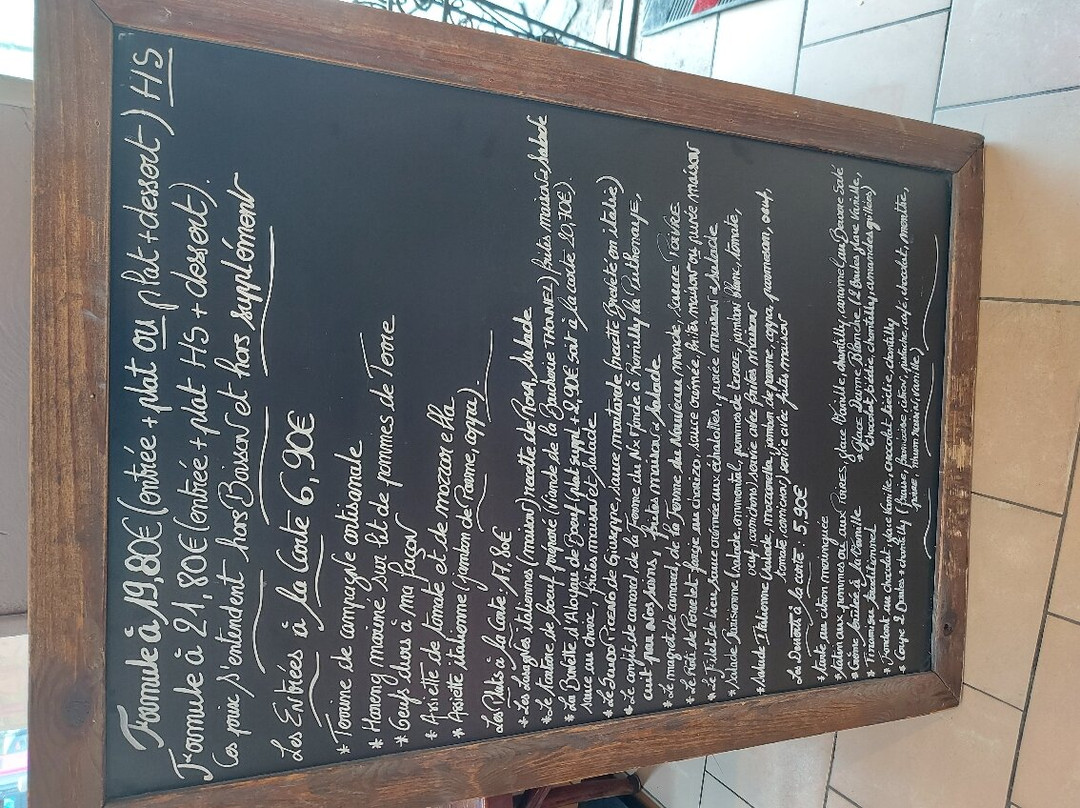 Formule à 19,80€ (entrée + plat ou plat + dessert) HS
Formule à 21,80€ (entrée + plat HS + dessert).
Ces prix s'entendent hors Boisson et hors supplément
Les Entrées à la Carte 6,90€
* Terrine de campagne artisanale
* Hareng mariné sur lit de pommes de Terre
* Oeufs durs à ma façon
* Assiette de tomate et de mozzarella
* Assiette italienne (jambon de Parme, coppa).
Les Plats à la Carte 17,80€
* Les lasagnes italiennes (maison) recette de Rosa, salade
* Le tartare de boeuf préparé (viande de la Boucherie THONNEZ) frites maison & salade
* La Bavette d'Aloyau de Boeuf (plat suppl + 2,90€ soit à la carte 20,70€).
sauce au choix, frites maison et salade
* Le confit de canard de la Ferme du Nv Monde à Romilly la Puthenaye,
cuit par nos soins, frites maison & salade
* Le magret de canard, de la Ferme du Nouveau monde, sauce Poivre
* Le filet de Poulet, sauce au chorizo, sauce crémée, frites maison ou purée maison
* Le Filet de lieu sauce crémée aux échalottes, purée maison & salade
* Salade Parisienne (salade, emmental, pommes de terre, jambon blanc, tomate,
oeuf, cornichons) servie avec frites maison
* Salade Italienne (salade, mozzarella, jambon de parme, coppa, parmesan, oeuf,
tomate, cornichon) servie avec frites maison
Les Desserts à la carte : 5,90€
* Tarte au citron meringuée
* Tatin aux pommes ou aux Poires, glace Vanille, chantilly, caramel au Beurre Salé
* Crème brûlée à la Vanille
* Glace Dame Blanche (2 boules glace Vanille,
chocolat, chantilly, amandes grillées)
* Tiramisu traditionnel
* Fondant au chocolat, glace Vanille, chantilly
* Coupe 2 Boules + chantilly (fraise, framboise, citron, pistache, café, chocolat, menthe,
poire, rhum raisin, vanille)